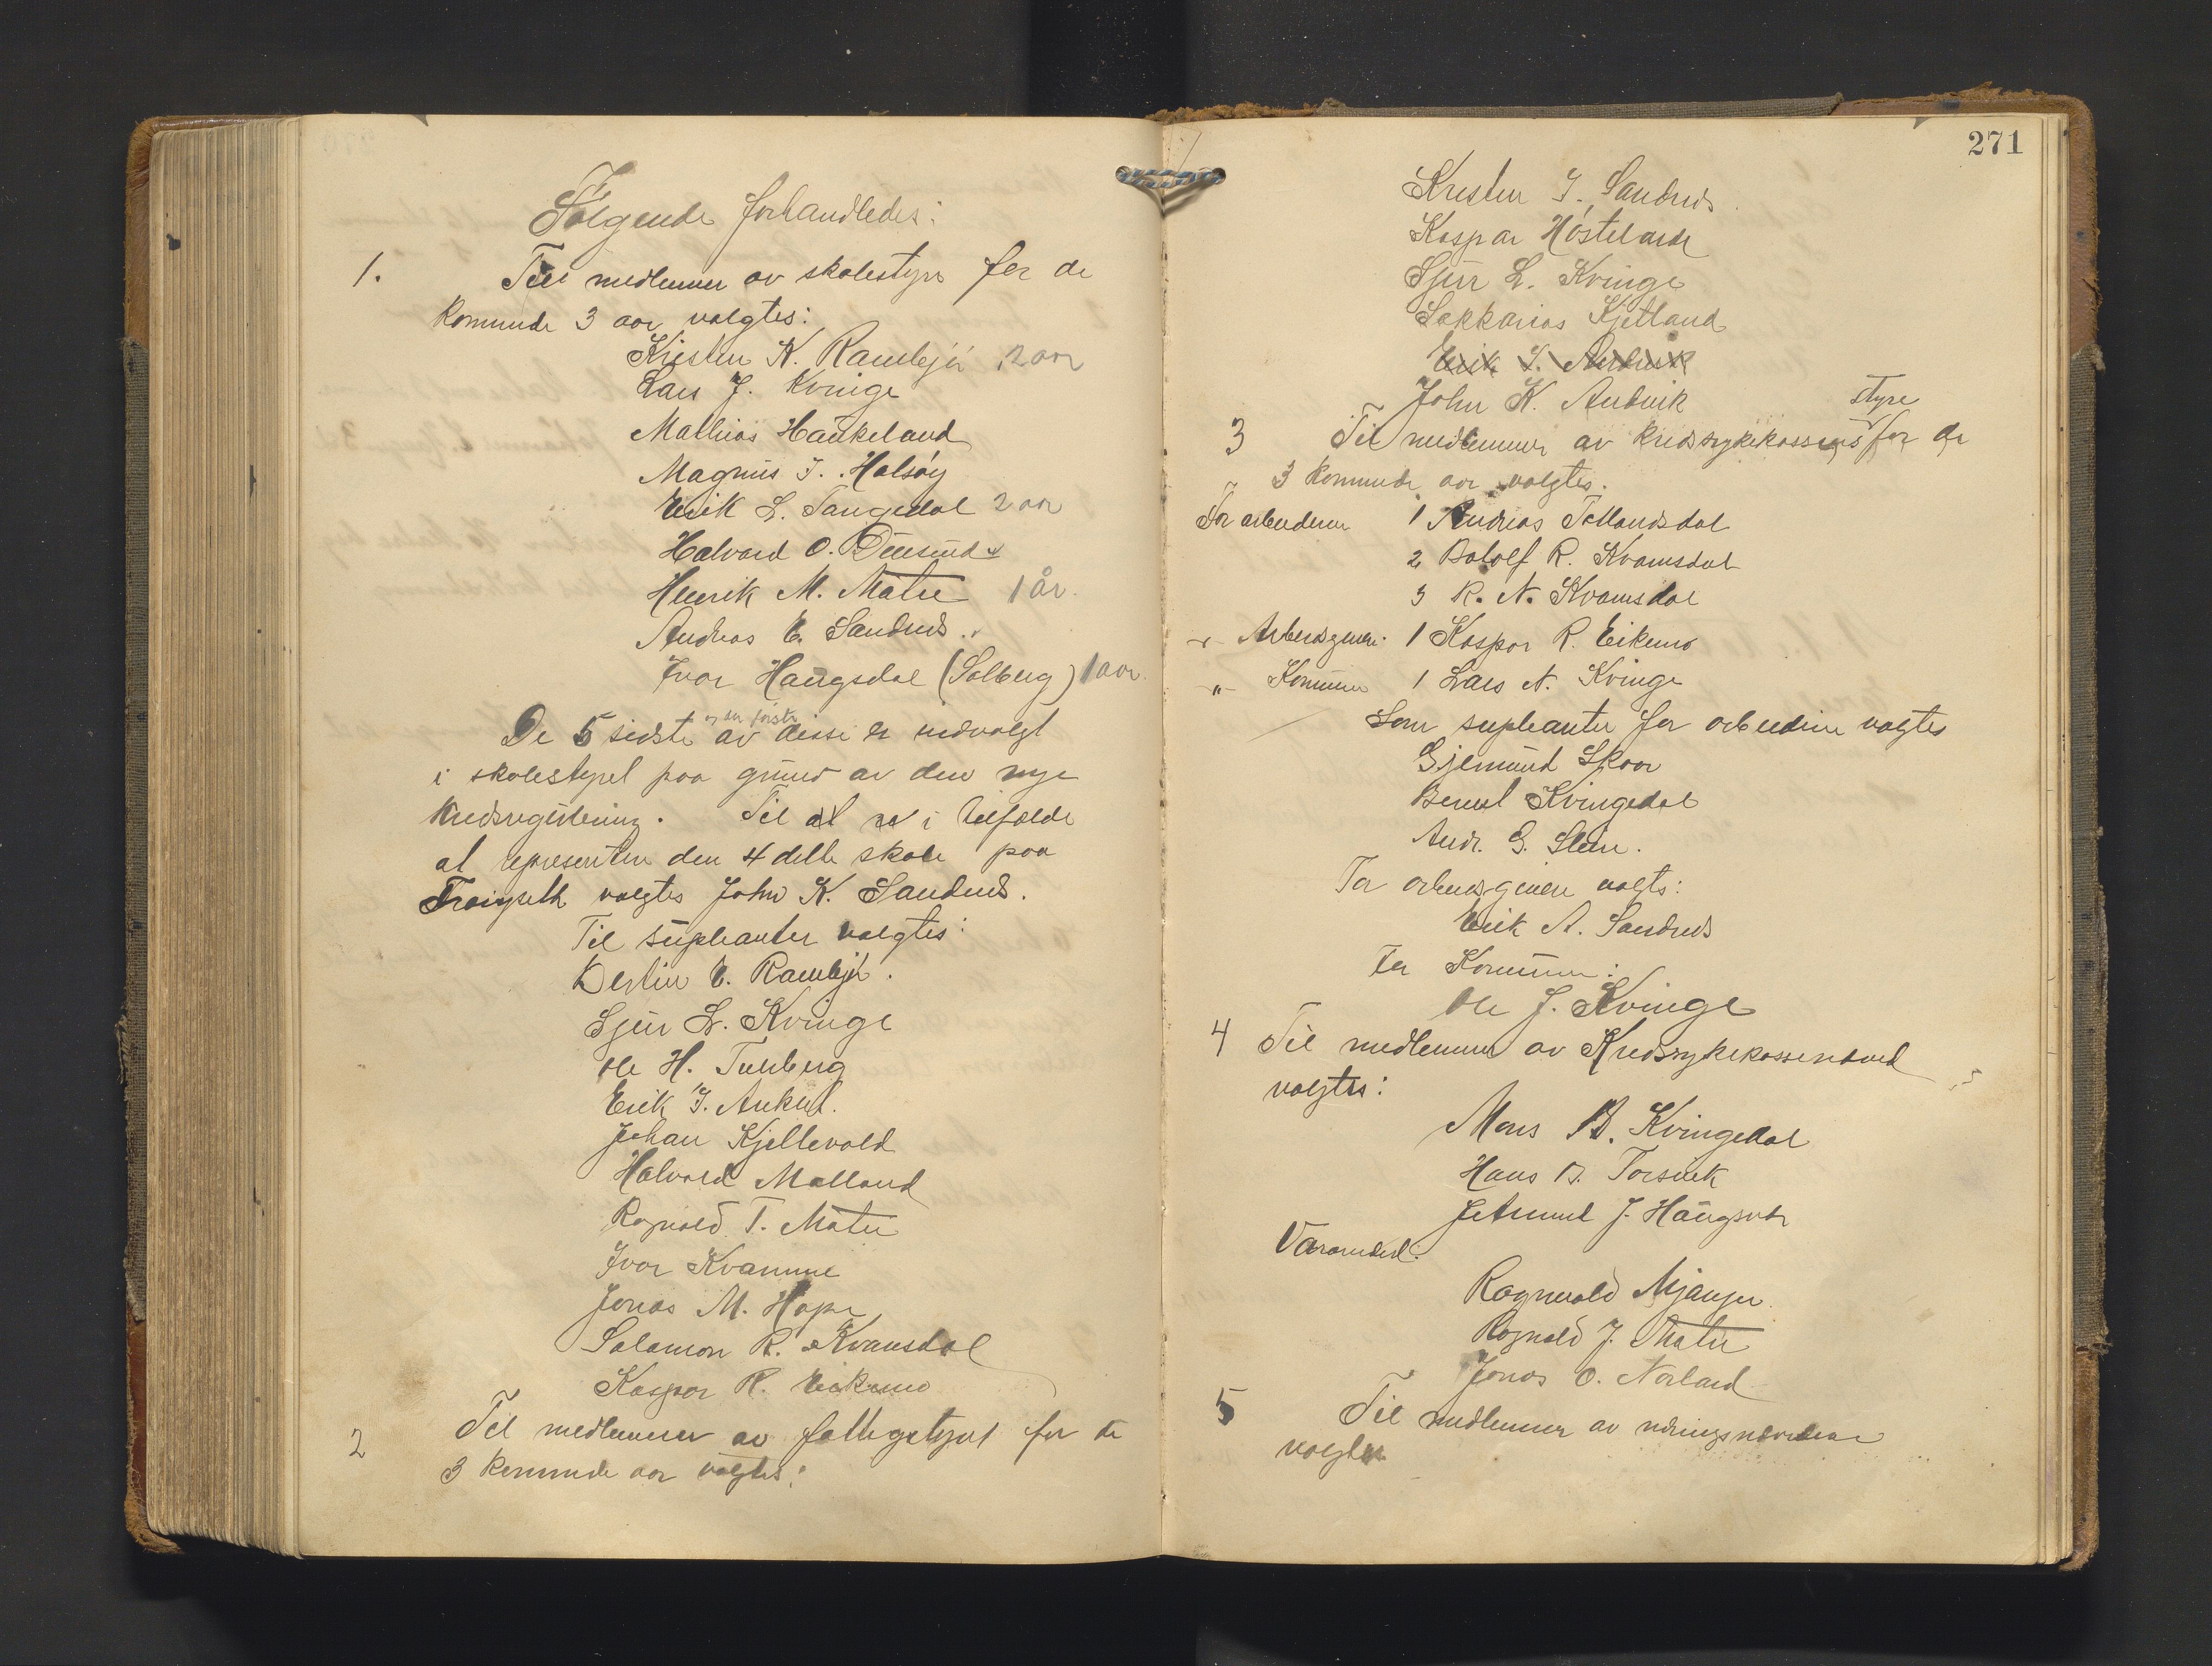 Følgende forhandledes:
1. Til medlemmer av skolestyre for de
komende 3 aar valgtes:
Kristen K. Rambjør 2 aar
Lars J. Kvinge
Mathias Haukeland
Magnus J. Halsøy
Erik L. Tangedal 2 aar
Halvard O. Duesund
Henrik M. Matre 1 år.
Andreas E. Sandnes
Ivar Haugsdal (Solberg) 1 aar.
og den første
De 5 sidste av disse er indvalgt
i skolestyret paa grund av den nye
Kredsregulering. Til at i tilfælde
at representere den 4 delte skole paa
valgtes John K. Sandnes.
Til supleanter valgtes:
E. Rambjør.
Sjur L. Kvinge
Ole H. Tveiberg
Erik J.
Johan Kjellevold
Halvard Molland
Ragnald T. Matre
Ivar Kvamme
Jonas M. Hope
Salamon R. Kvamsdal
Kaspar R. Eikemo
2 Til medlemmer av fattigstyret for de
3 komende aar valgtes:
271
Kristen J. Sandnes
Kaspar Høsteland
Sjur L. Kvinge
Sakkarias Kjetland
Erik J. Andvik
John K. Andvik
styre
3 Til medlemmer av Kredssykekassens for de
3 komende aar valgtes.
For arbeiderne 1 Andreas Totlandsdal
2 Botolf R. Kvamsdal
3 R. N. Kvamsdal
-"- Arbeidsgivere 1 Kaspar R. Eikemo
-"- Kommunen 1 Lars N. Kvinge
Som supleanter for arbeiderne valgtes
Gjermund Skaar
Bernt Kvingedal
Andr. G. Steine.
For arbeidsgivere valgts:
Erik A. Sandnes
For Kommunen:
Ole J. Kvinge
4 Til medlemmer av Kredssykekassenævnd
valgtes:
Mons B. Kvingedal
Hans B. Torsvik
J. Haugsvær
Varamedl:
Ragnvald Mjanger
Ragnald J. Matre
Jonas O. Norland
5 Til medlemmer av
valgtes